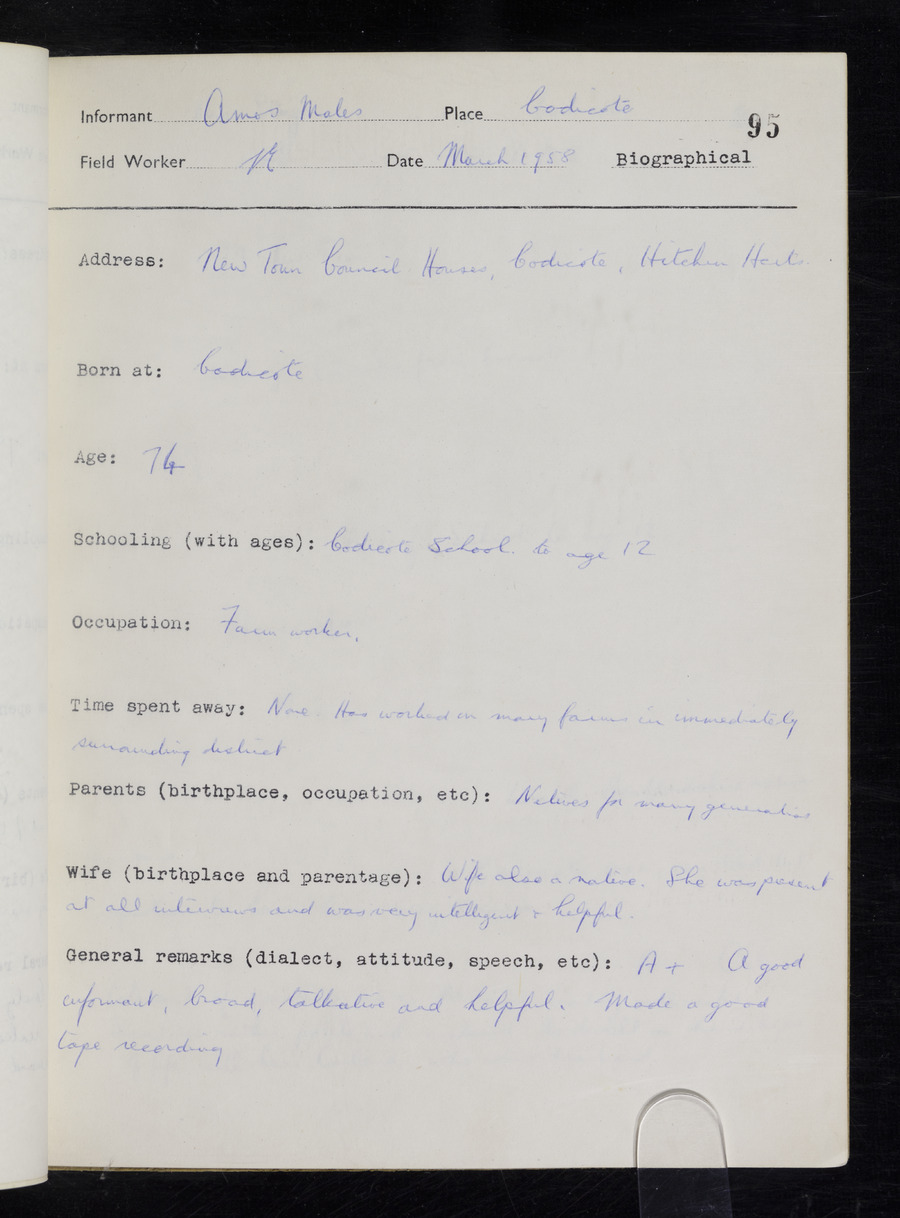 Informant Amos Males Place Codicote
95
Field Worker Date March 1958 Biographical
Address: New Town Council Houses, Codicote, Hitchin Herts.
Born at: Codicote
Age: 74
Schooling (with ages): Codicote School. to age 12
Occupation: Farm worker.
Time spent away: None. Has worked on many farms in immediately
surrounding district
Parents (birthplace, occupation, etc): Natives for many generations
Wife (birthplace and parentage): Wife also a native. She was present
at all interviews and was very intelligent & helpful.
General remarks (dialect, attitude, speech, etc): A+ A good
informant, broad, talkative and helpful. Made a good
tape recording